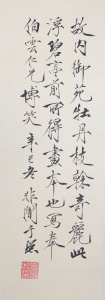 故内御苑牡丹枝幹奇麗此
浮碧亭前所得畫本也寫奉
伯雲仁兄博笑辛巳冬非闇于照